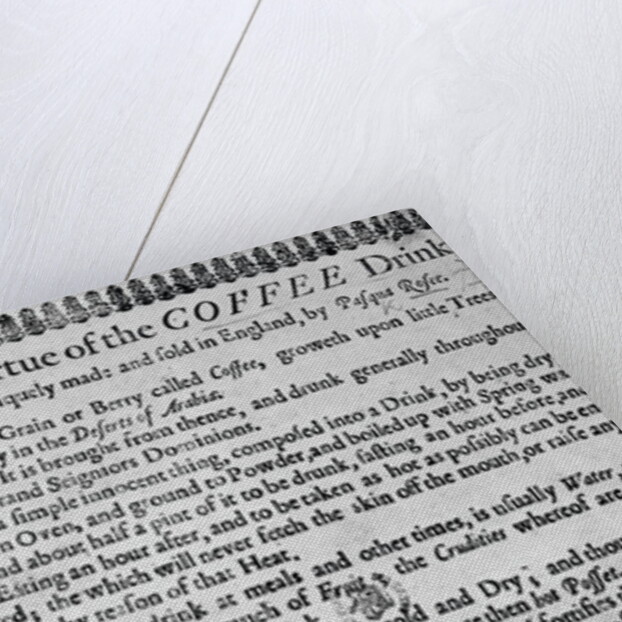 rtue of the COFFEE Drink
iquely made and ſold in England, by Paſqua Roſee.
Grain or Berry called Coffee, groweth upon little Trees
y in the Deſerts of Arabia.
It is brought from thence, and drunk generally throughout
rand Seigniors Dominions.
a ſimple innocent thing, compoſed into a Drink, by being dry
n Oven, and ground to Powder, and boiled up with Spring wa
nd about half a pint of it to be drunk, faſting an hour before and
Eating an hour after, and to be taken as hot as poſſibly can be en
d; the which will never fetch the skin off the mouth, or raiſe any
by reaſon of that Heat.
drink at meals and other times, is uſually Water
uch of Fruit the Crudities whereof are
old and Dry; and thou
then hot Poſſet.
fortifies